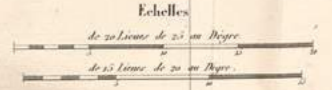 Echelles
de 20 Lieues de 25 au Dégre.
5 10 15 20
de 15 Lieues de 20 au Dégre.
5 10 15